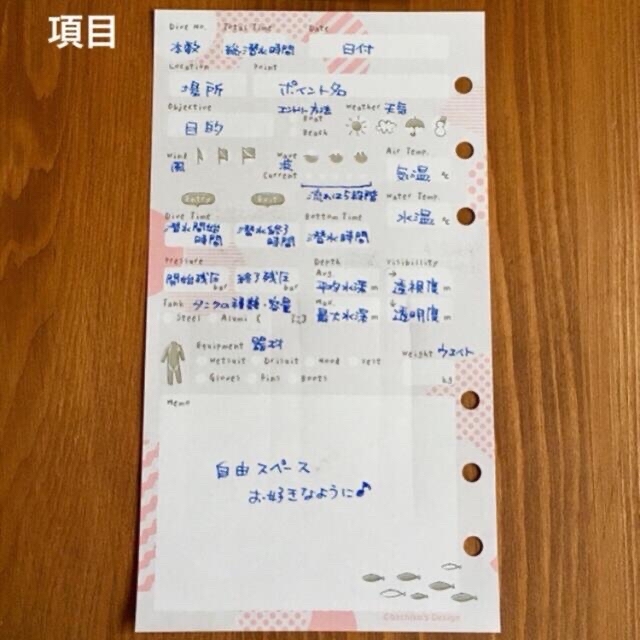 項目
Dive No. Total Time Date
本数 総潜水時間 日付
Location Point
場所 ポイント名
Objective エントリー方法 Boat Weather 天気
目的 Beach
Wind Wave Air Temp.
風 波 気温 ℃
Current
流れは5段階 Water Temp.
Entry Exit 水温 ℃
Dive Time Bottom Time
潜水開始時間 潜水終了時間 潜水時間
Pressure Depth Visibility
開始残圧 bar 終了残圧 bar Avg. 平均水深 m 透視度 m
Tank タンクの種類・容量 Max. 最大水深 m 透明度 m
Steel Alumi (
Equipment 器材 Weight ウエイト
Wetsuit Drisuit Hood Vest
Gloves Fins Boots kg
Memo
自由スペース
お好きなように♪
©Sachiko's Design